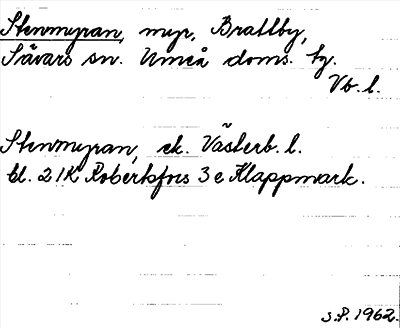 Stenmyran, myr, Brattby,
Sävars sn. Umeå doms. tg.
Vb. l.
Stenmyran, ek. Västerb. l.
bl. 21K Robertsfors 3e Klappmark.
S.P. 1962.